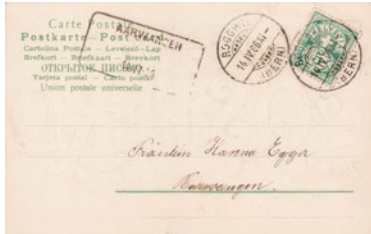 Carte Postale
Postkarte – Post card
Cartolina Postale – Levelező-Lap
Brefkort – Briefkaart – Brevkort
ОТКРЫТОЕ ПИСЬМО
Tarjeta postal – Carta postal
Union postale universelle
AARWANGEN
ROGGWIL
14.IV.06.XI-
(BERN)
14.IV.06
(BERN)
Fräulein Hanna Egger
Aarwangen.